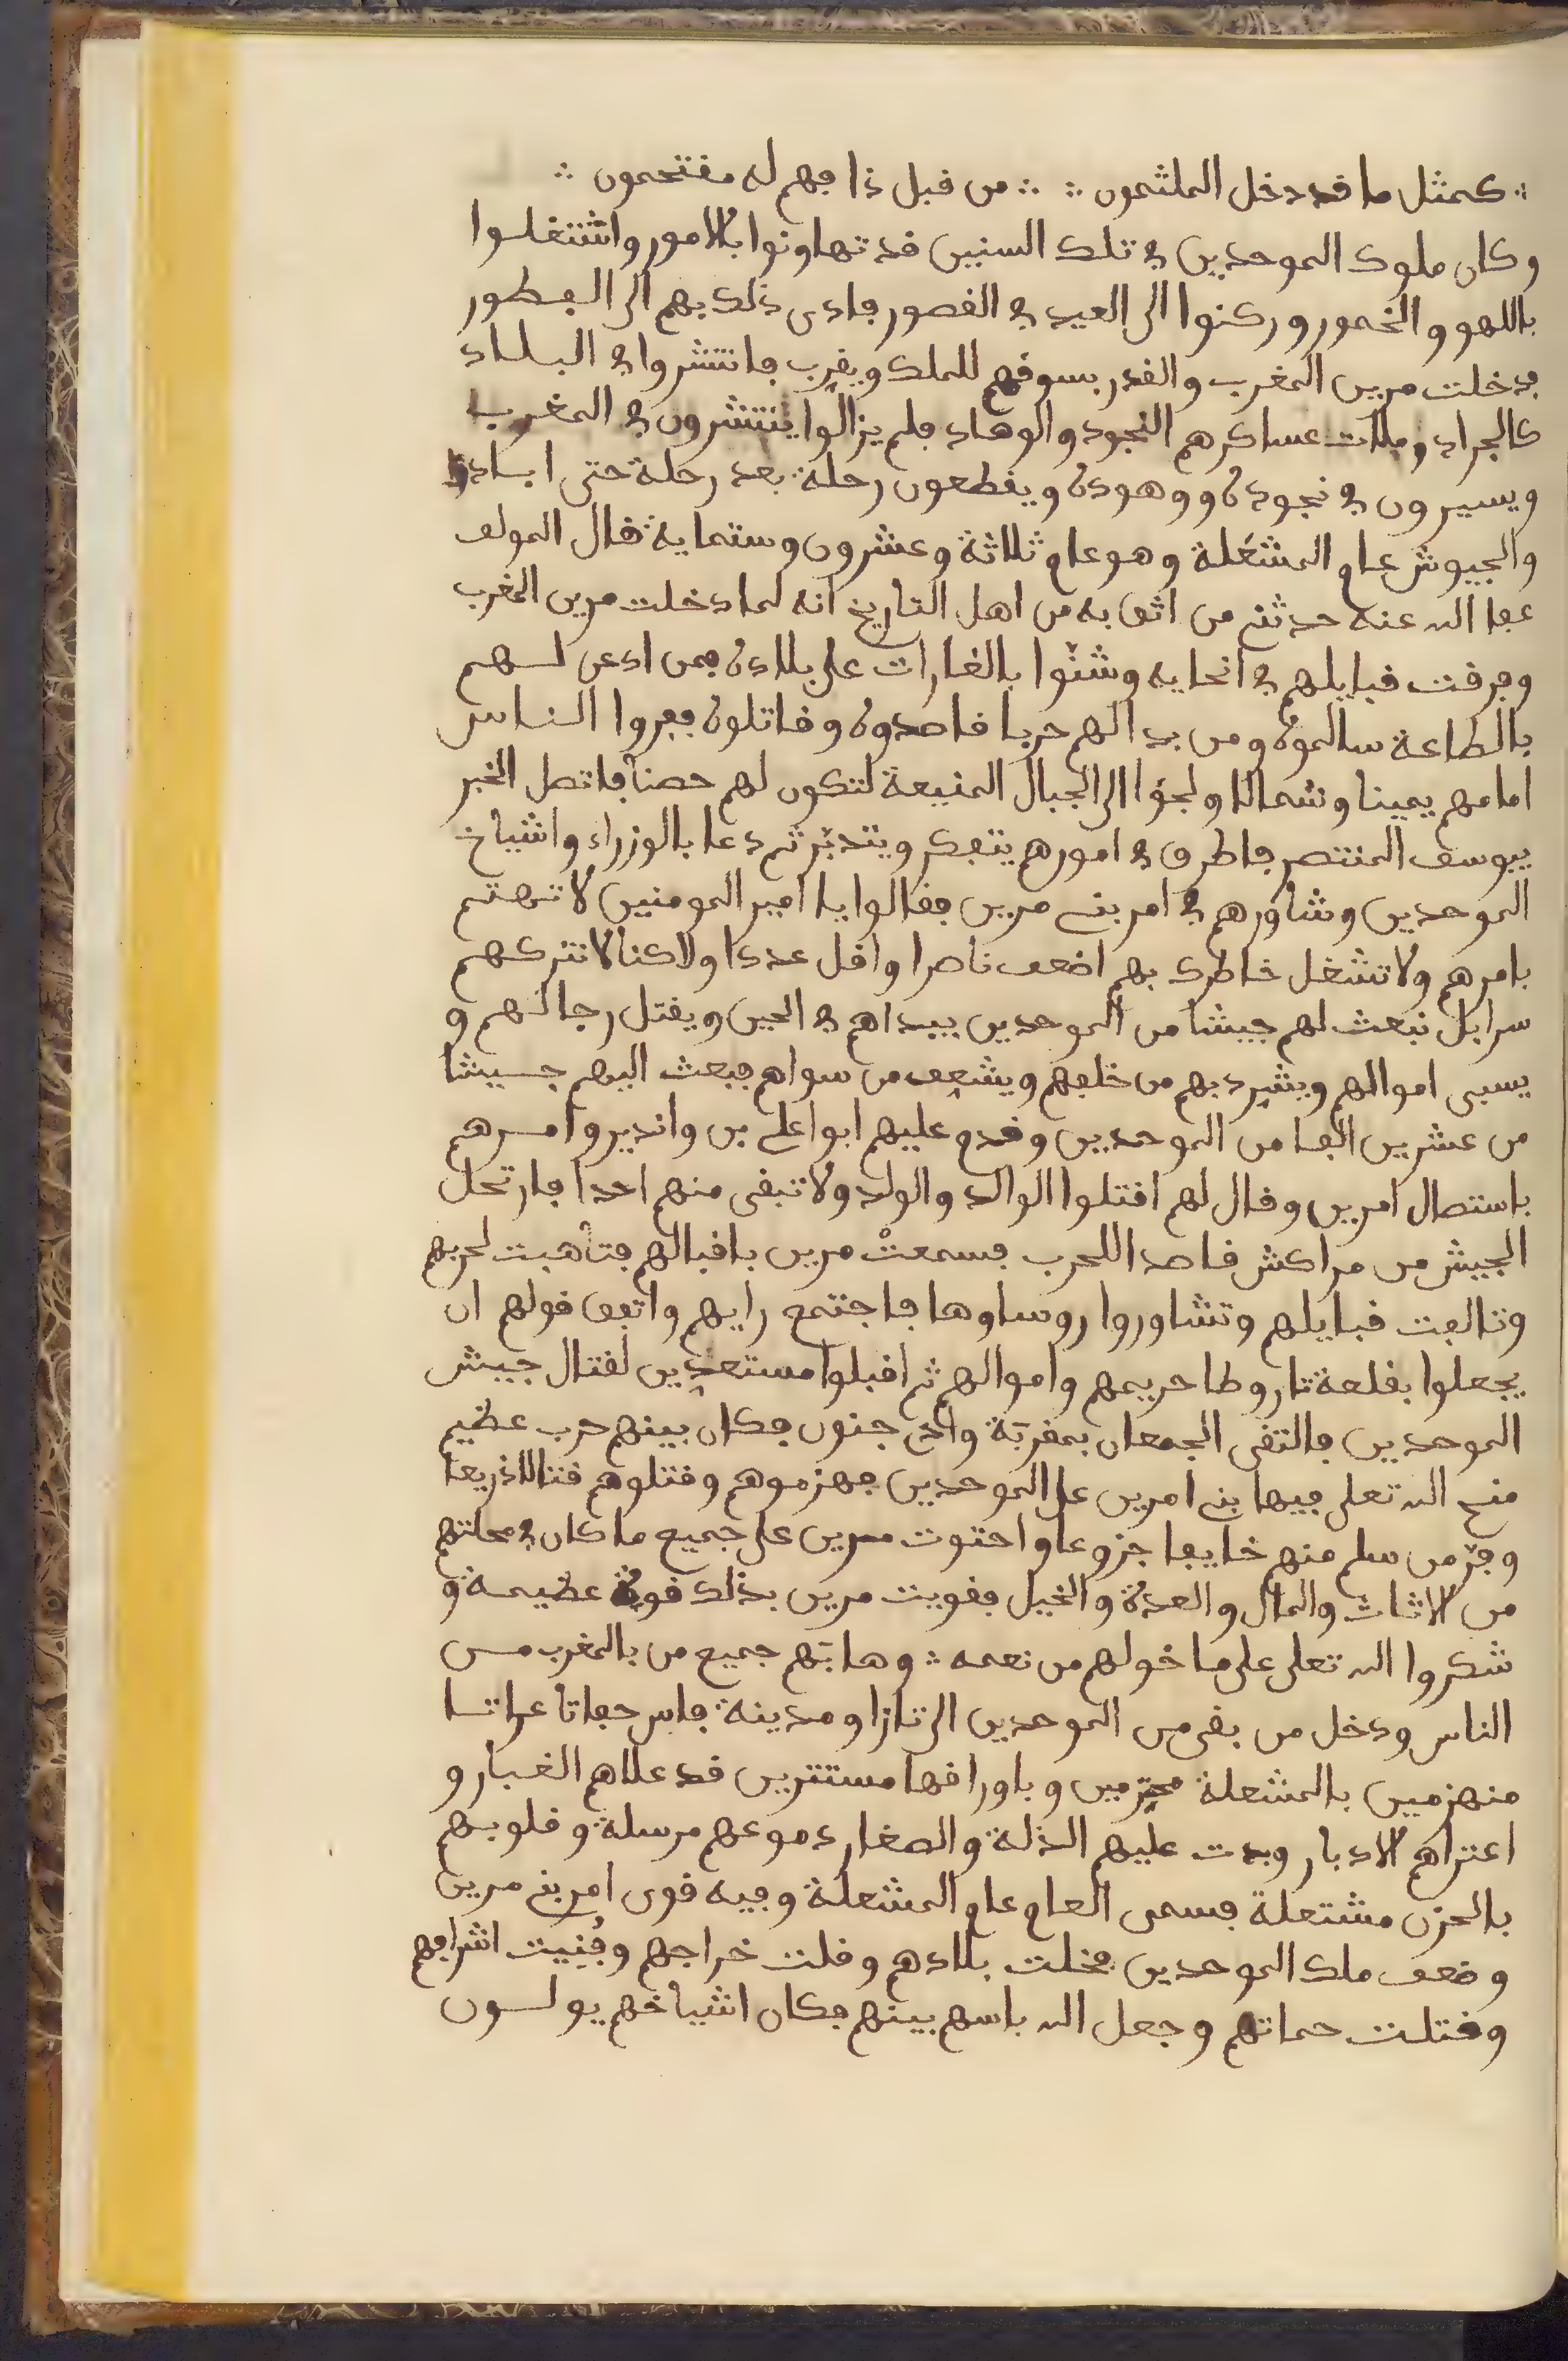 ∴ كمثل ما قد دخل الملثمون ∴ ∴ من قبل ذا فهم له مقتحمون ∴
وكان ملوك الموحدين في تلك السنين قد تهاونوا بالامور واشتغلوا
باللهو والخمور وركنوا الى العيد في القصور فادى ذلك بهم الى الفطور
فدخلت مرين المغرب والقدر يسوقهم للملك ويقرب فانتشروا في البلاد
كالجراد وملات عساكرهم النجود والوهاد فلم يزالوا ينتشرون في المغرب
ويسيرون في نجوده ووهوده ويقطعون رحلة بعد رحلة حتى ابادوا
والجيوش عام المشعلة وهو عام ثلاثة وعشرون وستماية قال المولف
عفا الله عنه حدثني من اثق به من اهل التاريخ انه لما دخلت مرين المغرب
وفرقت قبايلهم في انحايه وشنّوا بالغارات على بلاده فمن ادعى لهم
بالطاعة سالموه ومن بدا لهم حربا قاصدوه وقاتلوه ففروا الناس
امامهم يمينا وشمالا ولجؤا الى الجبال المنيعة لتكون لهم حصنا فاتصل الخبر
بيوسف المنتصر فاطرق في امورهم يتفكر ويتدبّر ثم دعا بالوزراء واشياخ
الموحدين وشاورهم في امر بني مرين فقالوا يا امير المومنين لا تهتم
بامرهم ولا تشغل خاطرك بهم اضعف ناصرا واقل عددا ولاكنا لا نتركهم
سرا بل نبعث لهم جيشا من الموحدين يبداهم في الحين ويقتل رجالهم و
يسبى اموالهم ويشرد بهم من خلفهم ويشعف من سواهم فبعث اليهم جيشا
من عشرين الفا من الموحدين وقدم عليهم ابوا على بن واندير وامرهم
باستصال امرين وقال لهم اقتلوا الوالد والولد ولا تبقى منهم احدا فارتحل
الجيش من مراكش قاصدا للحرب فسمعت مرين باقبالهم فتأهبت لحربهم
وتالفت قبايلهم وتشاوروا روساوها فاجتمع رايهم واتفق قولهم ان
يجعلوا بقلعة تاروطا حريمهم واموالهم ثم اقبلوا مستعدين لقتال جيش
الموحدين فالتقى الجمعان بمقربة وادي جنون فكان بينهم حرب عظيم
منح الله تعلى فيها بني امرين على الموحدين فهزموهم وقتلوهم قتالا ذريعا
وفرّ من سلم منهم خايفا جزوعا واحتوت مرين على جميع ما كان في محلتهم
من الاثاث والمال والعدة والخيل فقويت مرين بذلك قوة عظيمة و
شكروا الله تعلى على ما خولهم من نعمه ∴ وهابتهم جميع من بالمغرب مس
الناس ودخل من بقى من الموحدين الى تازا ومدينة فاس حفاتا عراتا
منهزمين بالمشعلة محتزمين وباوراقها مستترين قد علاهم الغبار و
اعتراهم الادبار وبدت عليهم الذلة والصغار دموعهم مرسلة وقلوبهم
بالحزن مشتعلة فسمى العام عام المشعلة وفيه قوى امر بني مرين
وضعف ملك الموحدين فخلت بلادهم وقلت خراجهم وفنيت اشرافهم
وقتلت حماتهم وجعل الله باسهم بينهم فكان اشياخهم يولون